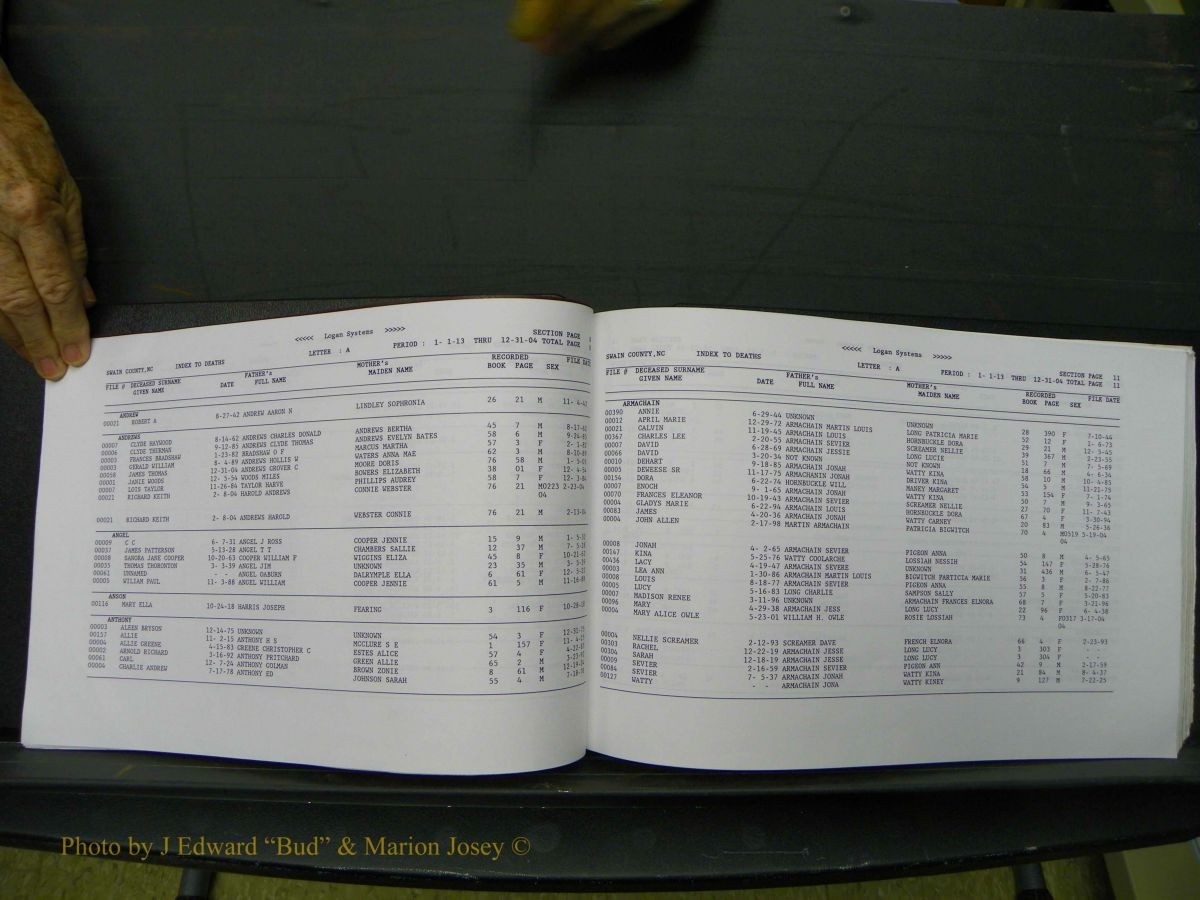 <<<<< Logan Systems >>>>>
SWAIN COUNTY,NC INDEX TO DEATHS LETTER : A PERIOD : 1- 1-13 THRU 12-31-04 SECTION PAGE
TOTAL PAGE
FILE # DECEASED SURNAME GIVEN NAME DATE FATHER's FULL NAME MOTHER's MAIDEN NAME RECORDED BOOK PAGE SEX FILE DATE
ANDREW
00021 ROBERT A 8-27-42 ANDREW AARON N LINDLEY SOPHRONIA 26 21 M 11- 4-42
ANDREWS
00007 CLYDE HAYWOOD 8-14-62 ANDREWS CHARLES DONALD ANDREWS BERTHA 45 7 M 8-17-62
00006 CLYDE THURMAN 9-12-85 ANDREWS CLYDE THOMAS ANDREWS EVELYN BATES 58 6 M 9-24-85
00003 FRANCES BRADSHAW 1-23-82 BRADSHAW O F MARCUS MARTHA 57 3 F 2- 1-82
00003 GERALD WILLIAM 8- 4-89 ANDREWS HOLLIS W WATERS ANNA MAE 62 3 M 8-10-89
00058 JAMES THOMAS 12-31-04 ANDREWS GROVER C MOORE DORIS 76 58 M 1- 5-05
00001 JANIE WOODS 12- 5-54 WOODS MILES BOWERS ELIZABETH 38 01 F 12- 4-5
00007 LOIS TAYLOR 11-26-84 TAYLOR HARVE PHILLIPS AUDREY 58 7 F 12- 3-84
00021 RICHARD KEITH 2- 8-04 HAROLD ANDREWS CONNIE WEBSTER 76 21 M0223 2-23-04
04
00021 RICHARD KEITH 2- 8-04 ANDREWS HAROLD WEBSTER CONNIE 76 21 M 2-13-04
ANGEL
00009 C C 6- 7-31 ANGEL J ROSS COOPER JENNIE 15 9 M 1- 5-32
00037 JAMES PATTERSON 5-13-28 ANGEL T T CHAMBERS SALLIE 12 37 M 7- 5-28
00008 SANDRA JANE COOPER 10-20-63 COOPER WILLIAM F WIGGINS ELIZA 45 8 F 10-21-63
00035 THOMAS THORONTON 3- 3-39 ANGEL JIM UNKNOWN 23 35 M 3- 3-39
00061 UNNAMED - - ANGEL OABURN DALRYMPLE ELLA 6 61 F 12- 5-22
00005 WILIAM PAUL 11- 3-88 ANGEL WILLIAM COOPER JENNIE 61 5 M 11-16-88
ANSON
00116 MARY ELLA 10-24-18 HARRIS JOSEPH FEARING 3 116 F 10-28-18
ANTHONY
00003 ALEEN BRYSON 12-14-75 UNKNOWN UNKNOWN 54 3 F 12-31-75
00157 ALLIE 11- 2-15 ANTHONY H S MCCLURE S E 1 157 F 11- 4-15
00004 ALLIE GREENE 4-15-83 GREENE CHRISTOPHER C ESTES ALICE 57 4 F 4-22-83
00002 ARNOLD RICHARD 3-16-92 ANTHONY PRITCHARD GREEN ALLIE 65 2 M 3-23-92
00061 CARL 12- 7-24 ANTHONY COLMAN BROWN ZONIE 8 61 M 12-19-24
00004 CHARLIE ANDREW 7-17-78 ANTHONY ED JOHNSON SARAH 55 4 M 7-18-78
<<<<< Logan Systems >>>>>
SWAIN COUNTY,NC INDEX TO DEATHS LETTER : A PERIOD : 1- 1-13 THRU 12-31-04 SECTION PAGE 11
TOTAL PAGE 11
FILE # DECEASED SURNAME GIVEN NAME DATE FATHER's FULL NAME MOTHER's MAIDEN NAME RECORDED BOOK PAGE SEX FILE DATE
ARMACHAIN
00390 ANNIE 6-29-44 UNKNOWN UNKNOWN 28 390 F 7-10-44
00012 APRIL MARIE 12-29-72 ARMACHAIN MARTIN LOUIS LONG PATRICIA MARIE 52 12 F 1- 6-73
00021 CALVIN 11-19-45 ARMACHAIN LOUIS HORNBUCKLE DORA 29 21 M 12- 3-45
00367 CHARLES LEE 2-20-55 ARMACHAIN SEVIER SCREAMER NELLIE 39 367 M 2-23-55
00007 DAVID 6-28-69 ARMACHAIN JESSIE LONG LUCIE 51 7 M 7- 5-69
00066 DAVID 3-20-34 NOT KNOWN NOT KNOWN 18 66 M 4- 6-34
00010 DEHART 9-18-85 ARMACHAIN JONAH WATTY KINA 58 10 M 10- 4-85
00005 DEWEESE SR 11-17-75 ARMACHANIN JONAH DRIVER KINA 54 5 M 11-21-75
00154 DORA 6-22-74 HORNBUCKLE WILL MANEY MARGARET 53 154 F 7- 1-74
00007 ENOCH 9- 1-65 ARMACHAIN JONAH WATTY KINA 50 7 M 9- 3-65
00070 FRANCES ELEANOR 10-19-43 ARMACHAIN SEVIER SCREAMER NELLIE 27 70 F 11- 7-43
00004 GLADYS MARIE 6-22-94 ARMACHAIN LOUIS HORNBUCKLE DORA 67 4 F 3-30-94
00083 JAMES 4-20-36 ARMACHAIN JONAH WATTY CARNEY 20 83 M 5-26-36
00004 JOHN ALLEN 2-17-98 MARTIN ARMACHAIN PATRICIA BIGWITCH 70 4 M0519 5-19-04
04
00008 JONAH 4- 2-65 ARMACHAIN SEVIER PIGEON ANNA 50 8 M 4- 5-65
00147 KINA 5-25-76 WATTY COOLARCHE LOSSIAH NESSIH 54 147 F 5-28-76
00436 LACY 4-19-47 ARMACHAIN SEVERE 31 436 M 6- 5-47
00003 LEA ANN 1-30-86 ARMACHAIN MARTIN LOUIS BIGWITCH PARTICIA MARIE 56 3 F 2- 7-86
00008 LOUIS 8-18-77 ARMACHAIN SEVIER PIGEON ANNA 55 8 M 8-22-77
00005 LUCY 5-16-83 LONG CHARLIE SAMPSON SALLY 57 5 F 5-20-83
00007 MADISON RENEE 3-11-96 UNKNOWN ARMACHAIN FRANCES ELNORA 68 7 F 3-21-96
00096 MARY 4-29-38 ARMACHAIN JESS LONG LUCY 22 96 F 6- 4-38
00004 MARY ALICE OWLE 5-23-01 WILLIAM H. OWLE ROSIE LOSSIAH 73 4 F0317 3-17-04
04
00004 NELLIE SCREAMER 2-12-93 SCREAMER DAVE FRENCH ELNORA 66 4 F 2-23-93
00303 RACHEL 12-22-19 ARMACHAIN JESSE LONG LUCY 3 303 F - -
00304 SARAH 12-18-19 ARMACHAIN JESSE LONG LUCY 3 304 F - -
00009 SEVIER 2-16-59 ARMACHAIN SEVIER PIGEON ANN 42 9 M 2-17-59
00084 SEVIER 7- 5-37 ARMACHAIN JONAH WATTY KINA 21 84 M 8- 4-37
00127 WATTY - - ARMACHAIN JONA WATTY KINEY 9 127 M 7-22-25
Photo by J Edward “Bud” & Marion Josey ©